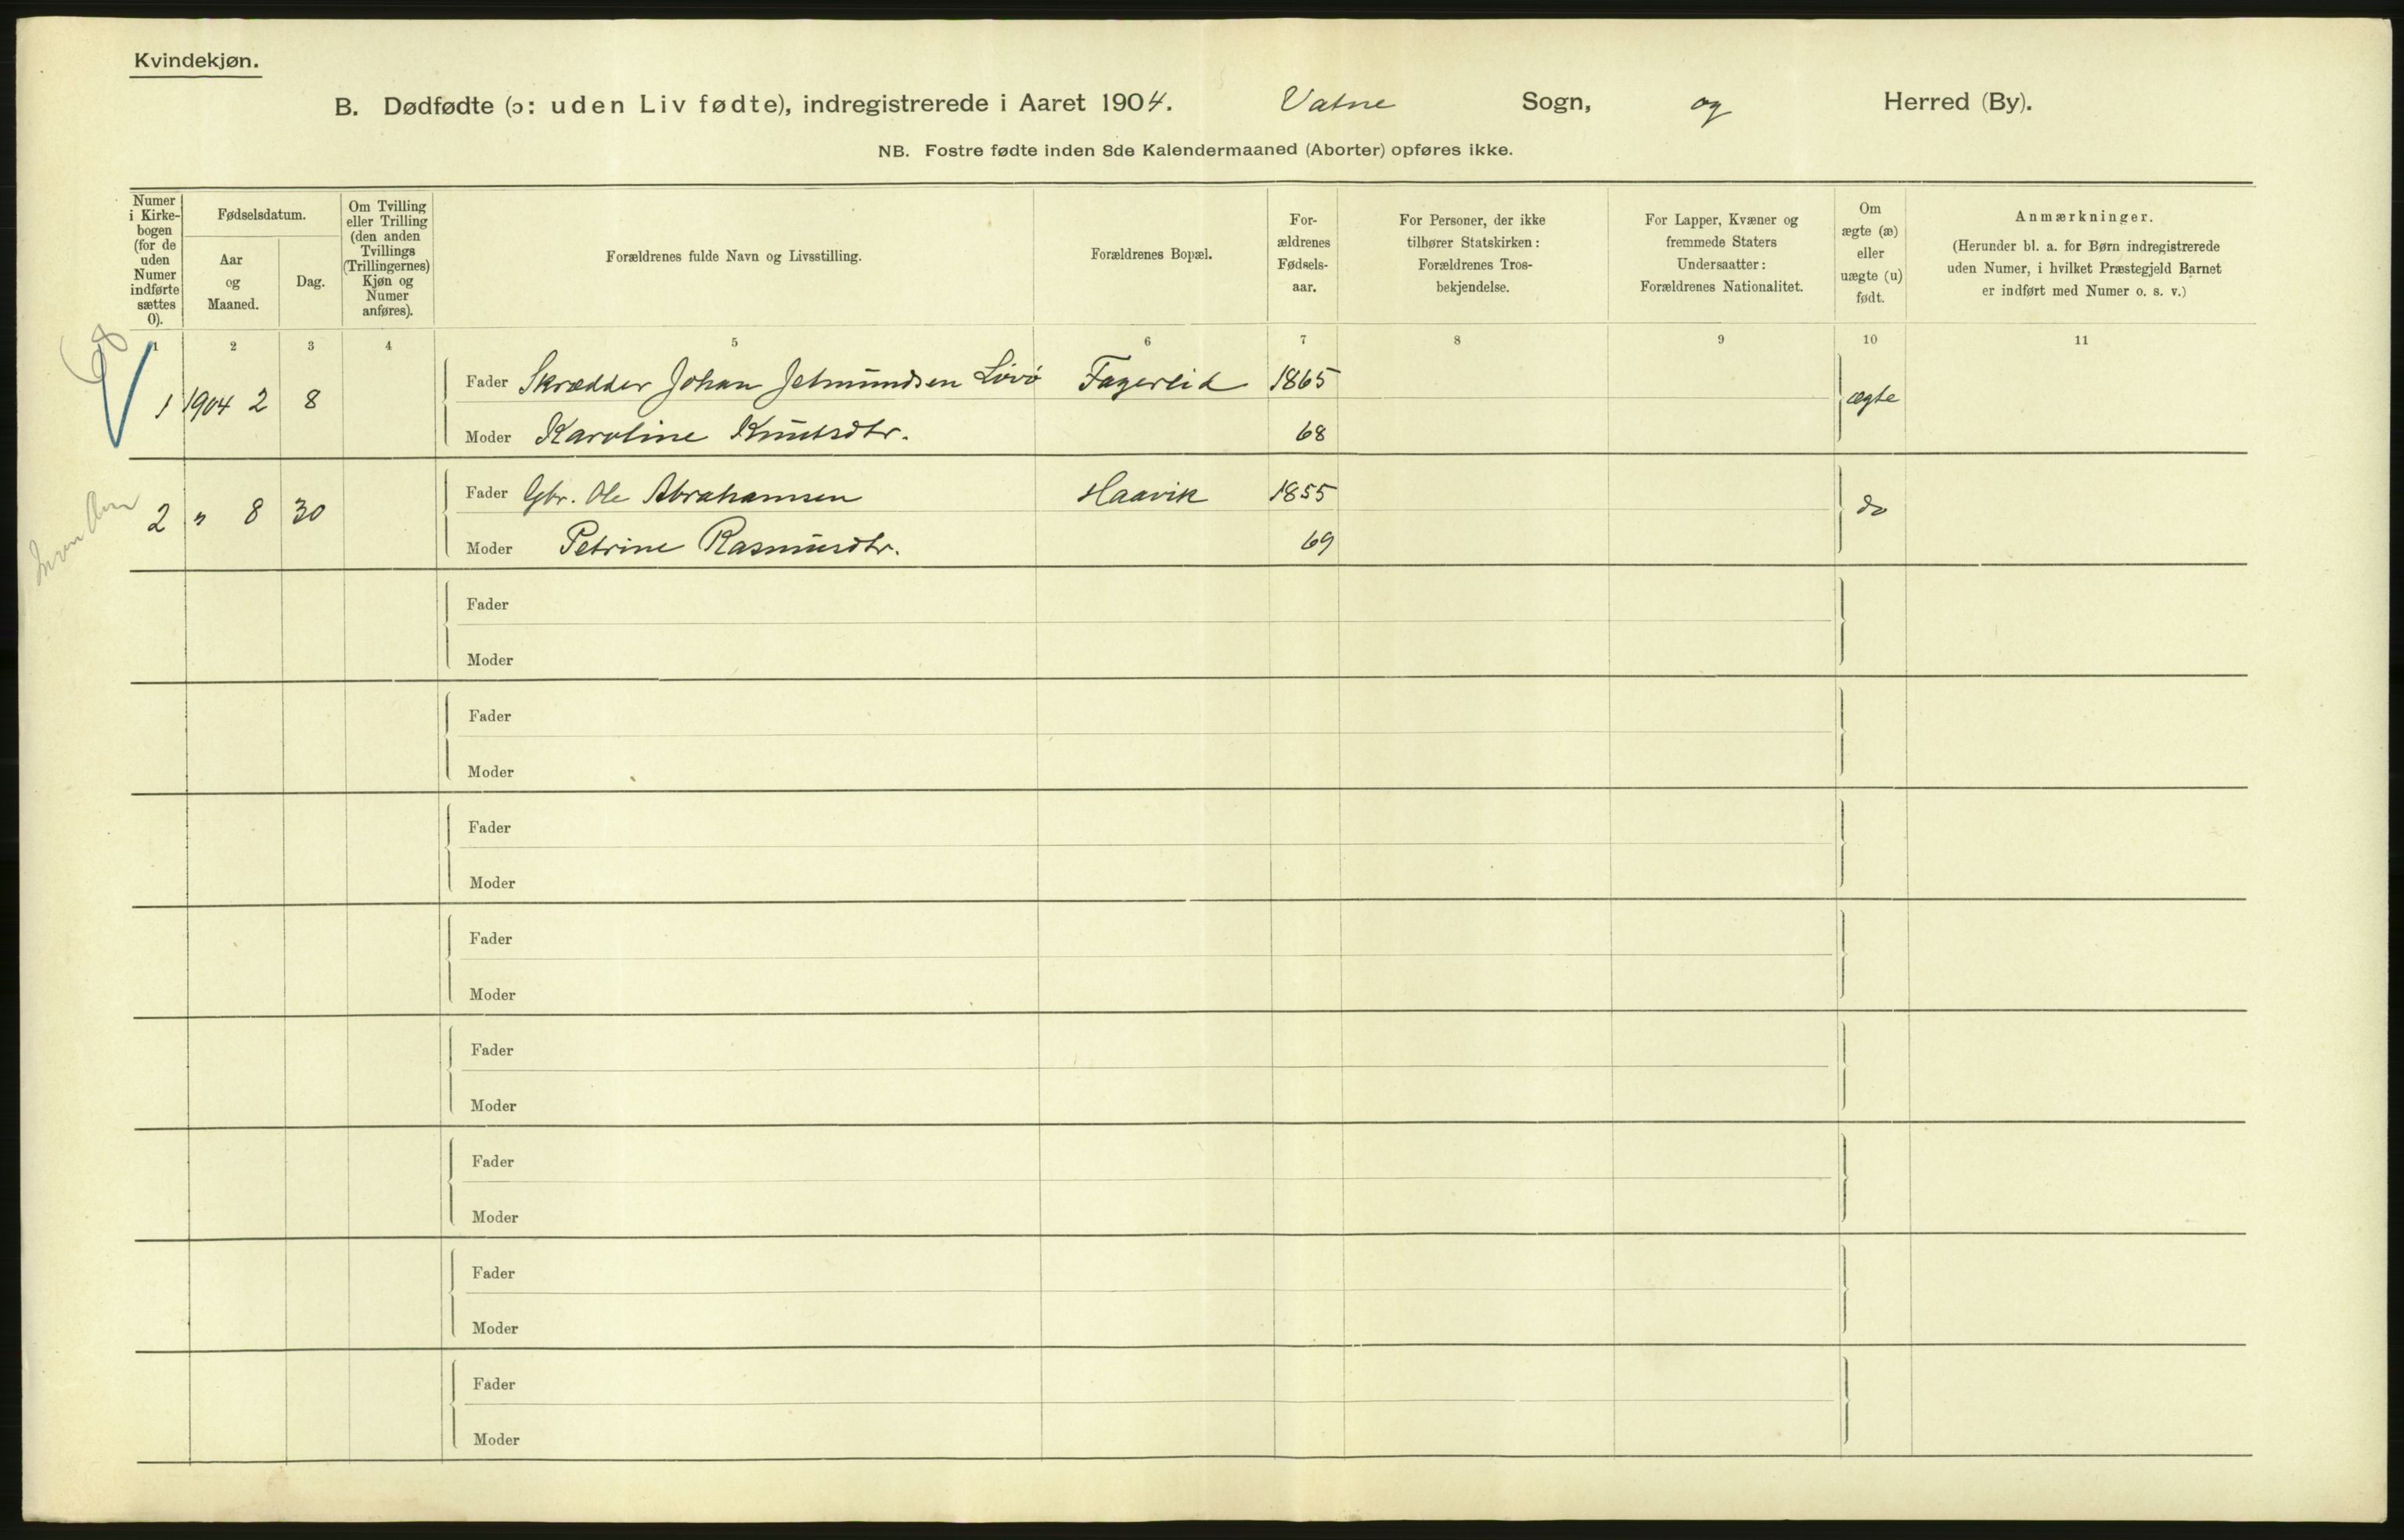 Kvindekjøn.
B. Dødfødte (ɔ: uden Liv fødte), indregistrerede i Aaret 1904. Vatne Sogn, og Herred (By).
NB. Fostre fødte inden 8de Kalendermaaned (Aborter) opføres ikke.
Numer i Kirkebogen (for de uden Numer indførte sættes 0).
Fødselsdatum.
Aar og Maaned.
Dag.
Om Tvilling eller Trilling (den anden Tvillings (Trillingernes) Kjøn og Numer anføres).
Forældrenes fulde Navn og Livsstilling.
Forældrenes Bopæl.
Forældrenes Fødselsaar.
For Personer, der ikke tilhører Statskirken: Forældrenes Trosbekjendelse.
For Lapper, Kvæner og fremmede Staters Undersaatter: Forældrenes Nationalitet.
Om ægte (æ) eller uægte (u) født.
Anmærkninger.
(Herunder bl. a. for Børn indregistrerede uden Numer, i hvilket Præstegjeld Barnet er indført med Numer o. s. v.)
1 2 3 4 5 6 7 8 9 10 11
1 1904 2 8 Fader Skrædder Johan Jetmundsen Løvö Fagereid 1865 ægte
Moder Karoline Knutsdtr. 68
2 " 8 30 Fader Gbr. Ole Abrahamsen Haavik 1855 do
Moder Petrine Rasmusdtr. 69
Fader
Moder
Fader
Moder
Fader
Moder
Fader
Moder
Fader
Moder
Fader
Moder
Fader
Moder
Fader
Moder